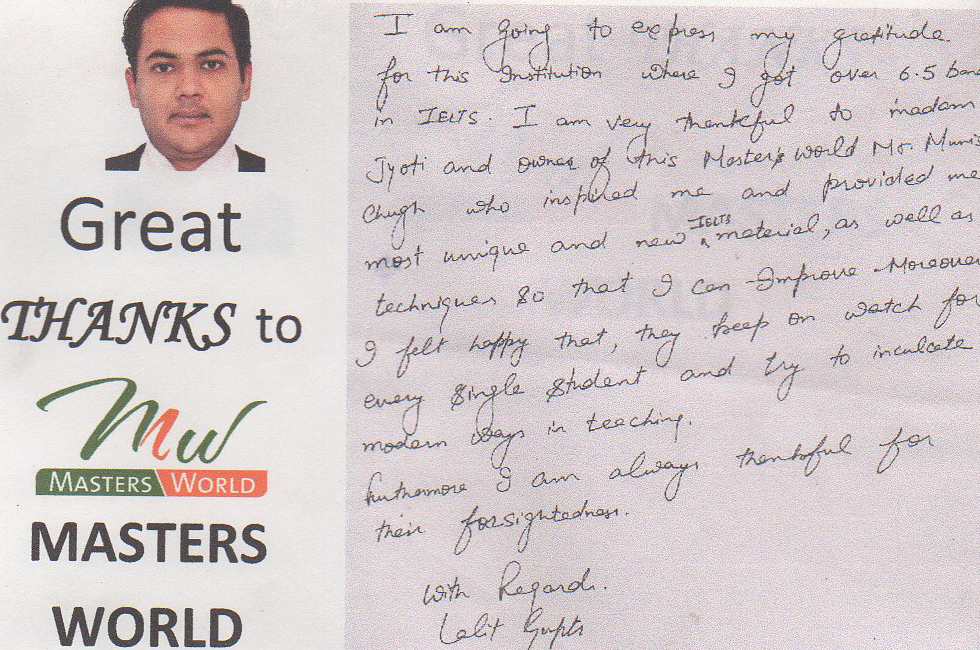 Great
THANKS to
MW
MASTERS WORLD
MASTERS
WORLD
I am going to express my gratitude
for this Institution where I got over 6.5 band
in IELTS. I am very thankful to madam
Jyoti and owner of this Master's world Mr. Munis
Chugh who inspired me and provided me
most unique and new IELTS material, as well as
techniques so that I can Improve. Moreover
I felt happy that, they keep on watch for
every single student and try to inculcate
modern ways in teaching.
furthermore I am always thankful for
their forsightedness.
with Regards.
Lalit Gupta